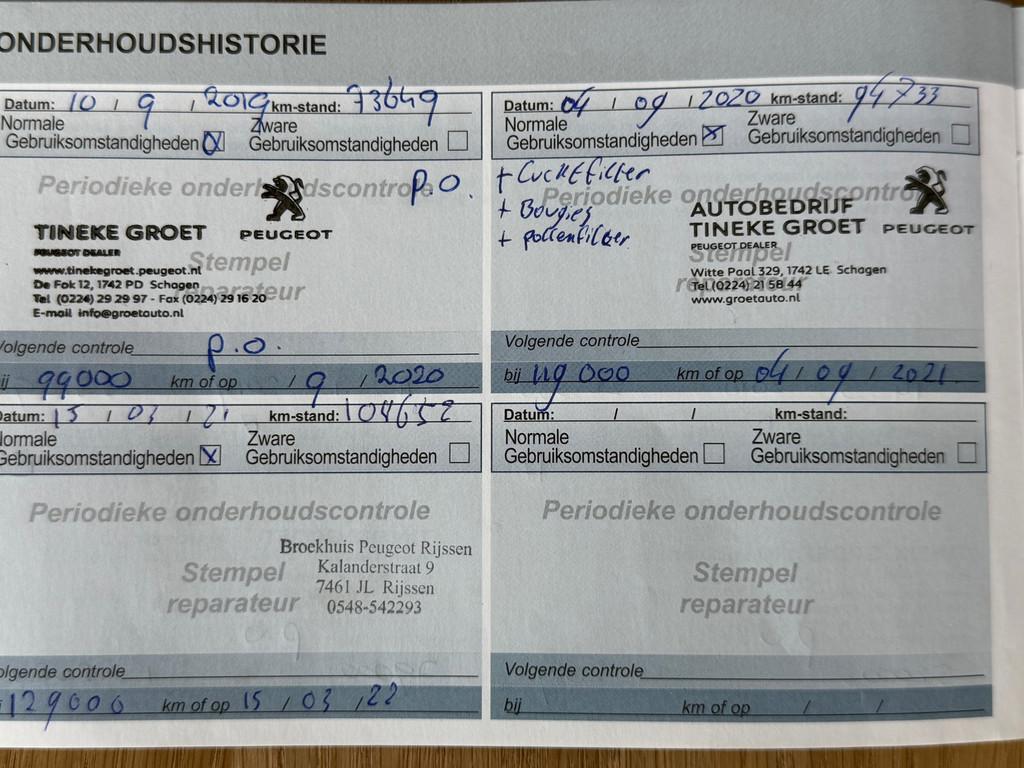 ONDERHOUDSHISTORIE
Datum: 10 / 9 / 2019 km-stand: 73649
Normale Zware
Gebruiksomstandigheden X Gebruiksomstandigheden
Periodieke onderhoudscontrole p.o.
TINEKE GROET PEUGEOT
PEUGEOT DEALER
Stempel
www.tinekegroet.peugeot.nl
De Fok 12, 1742 PD Schagen
reparateur
Tel (0224) 29 29 97 - Fax (0224) 29 16 20
E-mail info@groetauto.nl
Volgende controle p.o.
bij 99000 km of op / 9 / 2020
Datum: 04 / 09 / 2020 km-stand: 94733
Normale Zware
Gebruiksomstandigheden X Gebruiksomstandigheden
+ Luchtfilter
Periodieke onderhoudscontrole
+ Bougies
+ pollenfilter
AUTOBEDRIJF
TINEKE GROET PEUGEOT
PEUGEOT DEALER
Stempel
Witte Paal 329, 1742 LE Schagen
reparateur
Tel.(0224) 21 58 44
www.groetauto.nl
Volgende controle
bij 119 000 km of op 04 / 09 / 2021
Datum: 15 / 03 / 21 km-stand: 104652
Normale Zware
Gebruiksomstandigheden X Gebruiksomstandigheden
Periodieke onderhoudscontrole
Broekhuis Peugeot Rijssen
Stempel Kalanderstraat 9
7461 JL Rijssen
reparateur 0548-542293
Volgende controle
129000 km of op 15 / 03 / 22
Datum: / / km-stand:
Normale Zware
Gebruiksomstandigheden Gebruiksomstandigheden
Periodieke onderhoudscontrole
Stempel
reparateur
Volgende controle
bij km of op / /